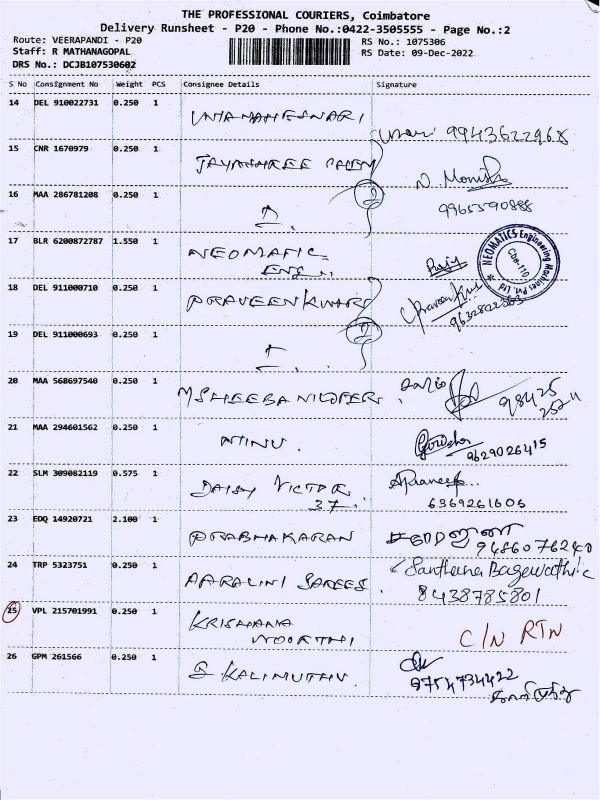 THE PROFESSIONAL COURIERS, Coimbatore
Delivery Runsheet - P20 - Phone No.:0422-3505555 - Page No.:2
Route: VEERAPANDI - P20
RS No.: 1075306
Staff: R MATHANAGOPAL
RS Date: 09-Dec-2022
DRS No.: DCJB107530602
S No Consignment No Weight PCS Consignee Details Signature
14 DEL 910022731 0.250 1 UMAMAHESWARI
9943622968
15 CNR 1670979 0.250 1 JAYASHREE
N. Monisha
16 MAA 286781208 0.250 1 2
9965590888
17 BLR 6200872787 1.550 1 NEOMATIC
ENG..
NEOMATICS Engineering Machines Pvt. Ltd
Cbe-110
18 DEL 911000710 0.250 1 PRAVEENKUMAR
19 DEL 911000693 0.250 1 2
20 MAA 568697540 0.250 1 M SHEEBA NILOFER
98425
21 MAA 294601562 0.250 1 NINU.
9629026415
22 SLM 309082119 0.575 1 DAISY VICTOR
37. 6369261606
23 EDQ 14920721 2.100 1 PRABHAKARAN
9486076240
24 TRP 5323751 0.250 1 SAREES Santhana
8438785801
25 VPL 215701991 0.250 1 KRISHANA
MOORTHI C/N RTN
26 GPM 261566 0.250 1 S KALIMUTHU
9754734422